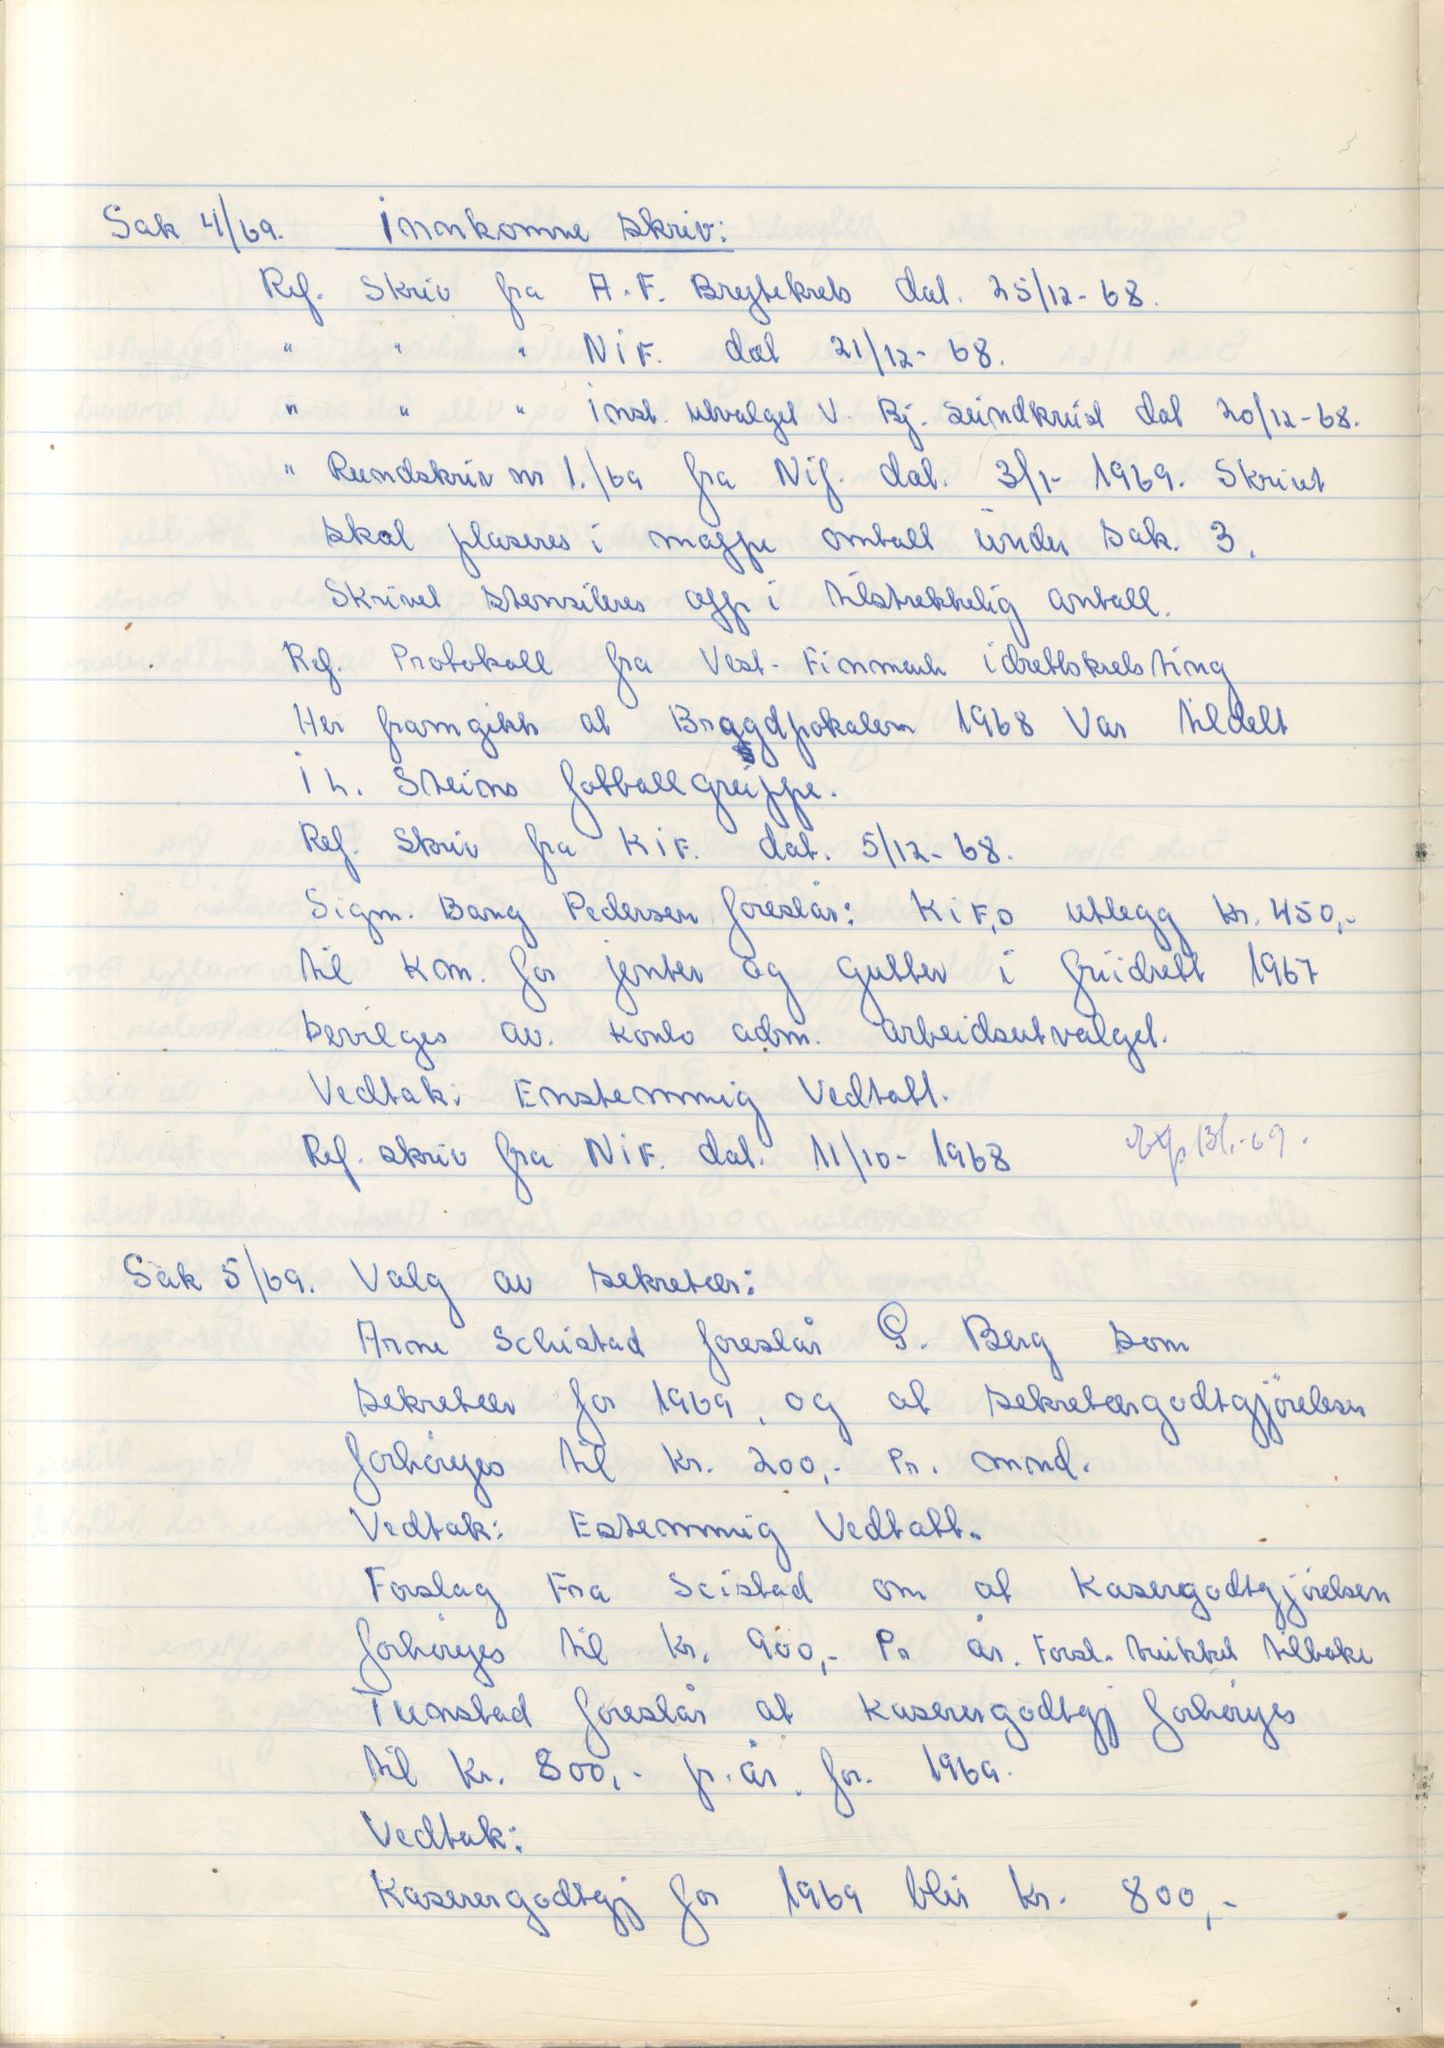 Sak 4/69. Innkomne skriv:
Ref. Skriv fra A.F. Brytekrets dat. 25/12-68.
" " " NIF. dat 21/12-68.
" " " inst. utvalget v. Bj. Sundkvist dat 20/12-68.
" Rundskriv nr 1./69 fra Nif. dat. 3/1-1969. Skrivet
skal plaseres i mappe omtalt under sak. 3.
Skrivet stensileres opp i tilstrekkelig antall.
Ref. Protokoll fra Vest-Finnmark idrettskrets ting
Her framgikk at Bragdpokalen 1968 var tildelt
I L. Steins fotballgruppe.
Ref. Skriv fra KIF. dat. 5/12-68.
Sigm. Bang Pedersen foreslår: KIF,s utlegg kr. 450,-
til Km. for jenter og gutter i friidrett 1967
bevilges av. konto adm. arbeidsutvalget.
Vedtak: Enstemmig Vedtatt.
Ref. skriv fra NIF. dat. 11/10-1968 exp 13/1.-69.
Sak 5/69. Valg av sekretær:
Arne Schistad foreslår G. Berg som
sekretær for 1969, og at sekretærgodtgjörelsen
forhöyes til kr. 200,- Pr. mnd.
Vedtak: Estemmig Vedtatt.
Forslag Fra Scistad om at Kasergodtgjörelsen
forhöyes til kr. 900,- Pr år. Forsl. trukket tilbake
Tunstad foreslår at Kaserergodtgj forhöyes
til kr. 800,- pr. år. for. 1969.
Vedtak:
Kaserergodtgj for 1969 blir kr. 800,-